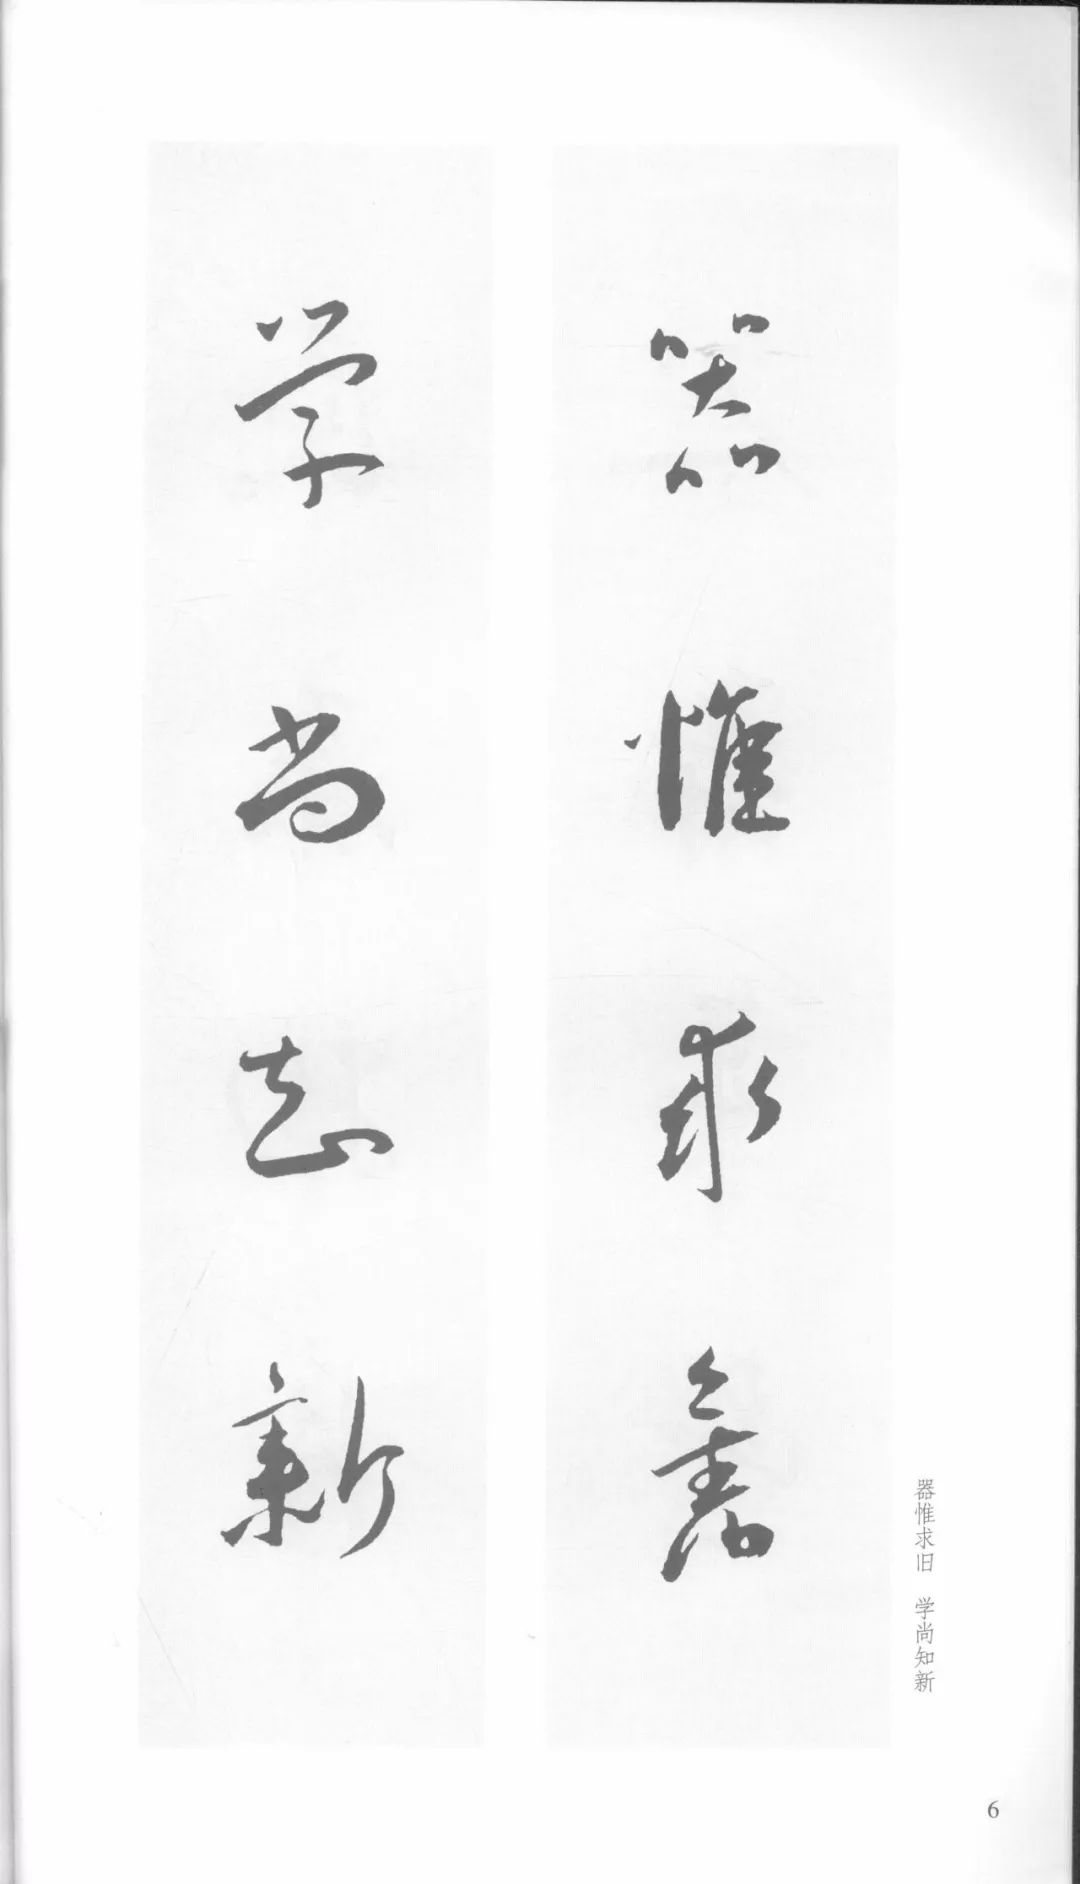 器惟求舊
学尚知新
器惟求旧 学尚知新
6